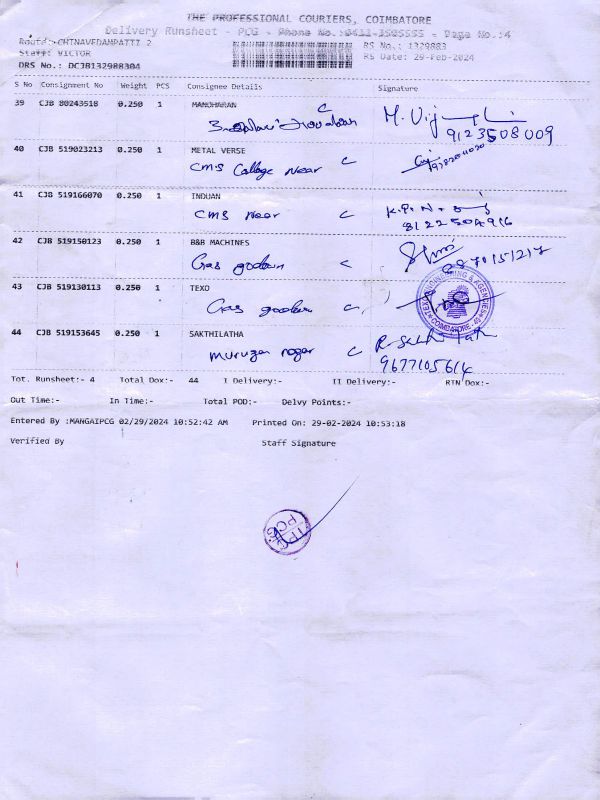 THE PROFESSIONAL COURIERS, COIMBATORE
Delivery Runsheet - PCG - Phone No.:0422-4505555 - Page No.:4
Route:-CHINAVEDAMPATTI 2 RS No.: 1329883
Staff: VICTOR RS Date: 29-Feb-2024
DRS No.: DCJB132988304
S No Consignment No Weight PCS Consignee Details Signature
39 CJB 80243518 0.250 1 MANOHARAN C M.
9123508009
40 CJB 519023213 0.250 1 METAL VERSE
CMS College Near C
41 CJB 519166070 0.250 1 INDUAN K.P.N.
CMS Near C
42 CJB 519150123 0.250 1 B&B MACHINES
Gas godown C
43 CJB 519130113 0.250 1 TEXO
Gas godown C
44 CJB 519153645 0.250 1 SAKTHILATHA
Murugan nagar C 9677105614
Tot. Runsheet:- 4 Total Dox:- 44 I Delivery:- II Delivery:- RTN Dox:-
Out Time:- In Time:- Total POD:- Delvy Points:-
Entered By :MANGAIPCG 02/29/2024 10:52:42 AM Printed On: 29-02-2024 10:53:18
Verified By Staff Signature
TPC
PCG